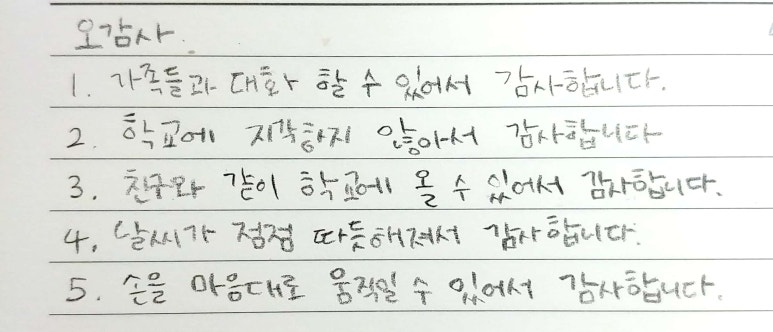 오감사.
1. 가족들과 대화 할 수 있어서 감사합니다.
2. 학교에 지각하지 않아서 감사합니다
3. 친구와 같이 학교에 올 수 있어서 감사합니다.
4. 날씨가 점점 따듯해져서 감사합니다.
5. 손을 마음대로 움직일 수 있어서 감사합니다.